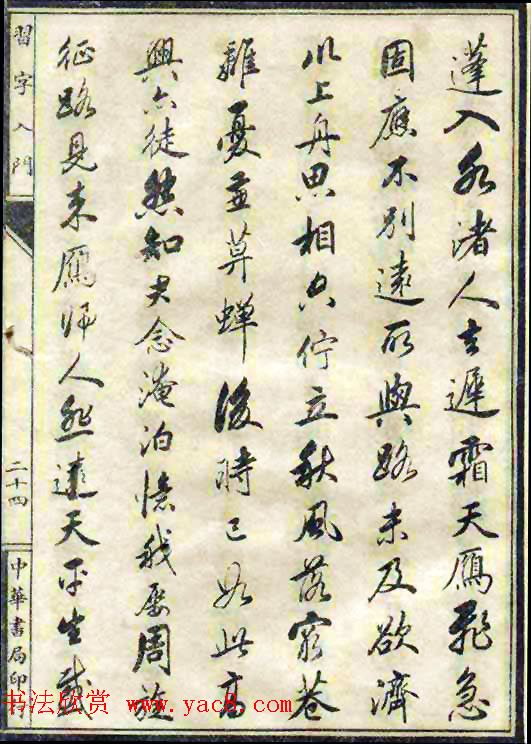 蓬入渚人去遲霜天雁飛急
固應不別遠所與路未及欲濟
川上舟思相空佇立秋風落窮巷
離憂兼暮蟬後時已如此高
興亦徒然知君念淹泊憶我屢周旋
征路見來雁歸人悲遠天平生感
習字入門
二十四
中華書局印行
书法欣赏 www.yac8.com